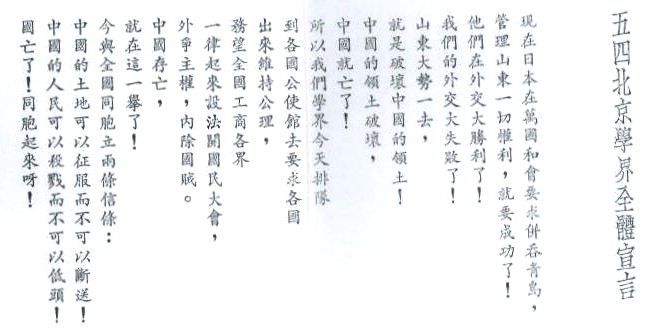 五四北京學界全體宣言
現在日本在萬國和會要求併吞青島，
管理山東一切權利，就要成功了！
他們在外交大勝利了！
我們的外交大失敗了！
山東大勢一去，
就是破壞中國的領土！
中國的領土破壞，
中國就亡了！
所以我們學界今天排隊
到各國公使館去要求各國
出來維持公理，
務望全國工商各界
一律起來設法開國民大會，
外爭主權，內除國賊。
中國存亡，
就在這一舉了！
今與全國同胞立兩條信條：
中國的土地可以征服而不可以斷送！
中國的人民可以殺戮而不可以低頭！
國亡了！同胞起來呀！